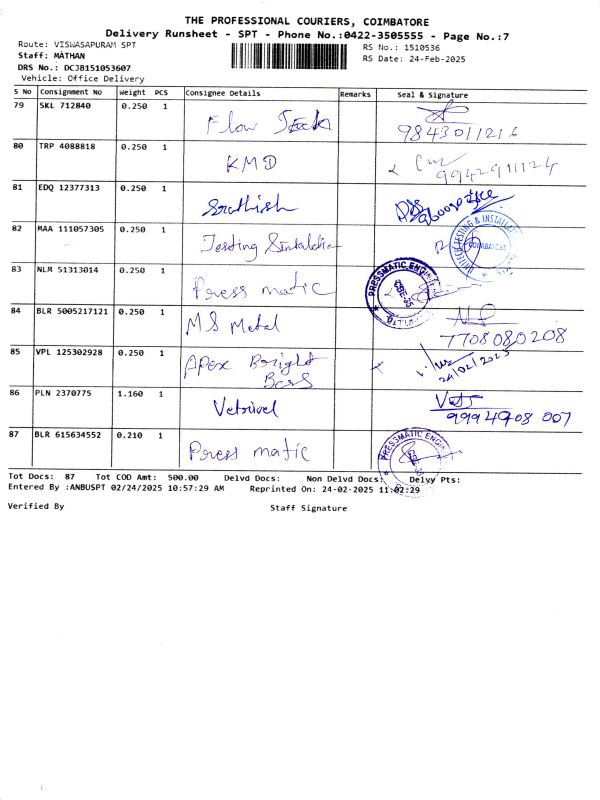 THE PROFESSIONAL COURIERS, COIMBATORE
Delivery Runsheet - SPT - Phone No.:0422-3505555 - Page No.:7
Route: VISWASAPURAM SPT
RS No.: 1510536
Staff: MATHAN
RS Date: 24-Feb-2025
DRS No.: DCJB151053607
Vehicle: Office Delivery
S No Consignment No Weight PCS Consignee Details Remarks Seal & Signature
79 SKL 712840 0.250 1 Flow Teck
9843011216
80 TRP 4088818 0.250 1 KMD
9942911124
81 EDQ 12377313 0.250 1 Srathish
82 MAA 111057305 0.250 1 Testing
TESTING & INSTALLAT
COIMBATORE
83 NLM 51313014 0.250 1 Press matic
PRESSMATIC ENGIN
84 BLR 5005217121 0.250 1 MS Metal
7708080208
85 VPL 125302928 0.250 1 Apex Bright
Bars
24/02/2025
86 PLN 2370775 1.160 1 Vetrivel
9994908 007
87 BLR 615634552 0.210 1 Press matic
PRESSMATIC ENGIN
Tot Docs: 87 Tot COD Amt: 500.00 Delvd Docs: Non Delvd Docs: Delvy Pts:
Entered By :ANBUSPT 02/24/2025 10:57:29 AM Reprinted On: 24-02-2025 11:02:29
Verified By Staff Signature